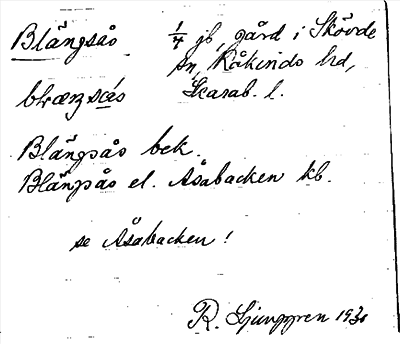 Blängsås ¼ jb, gård i Skövde
sn, Kåkinds hd,
Skarab. l.
Blängsås bek.
Blängsås el. Åsabacken kb.
se Åsabacken!
R. Ljunggren